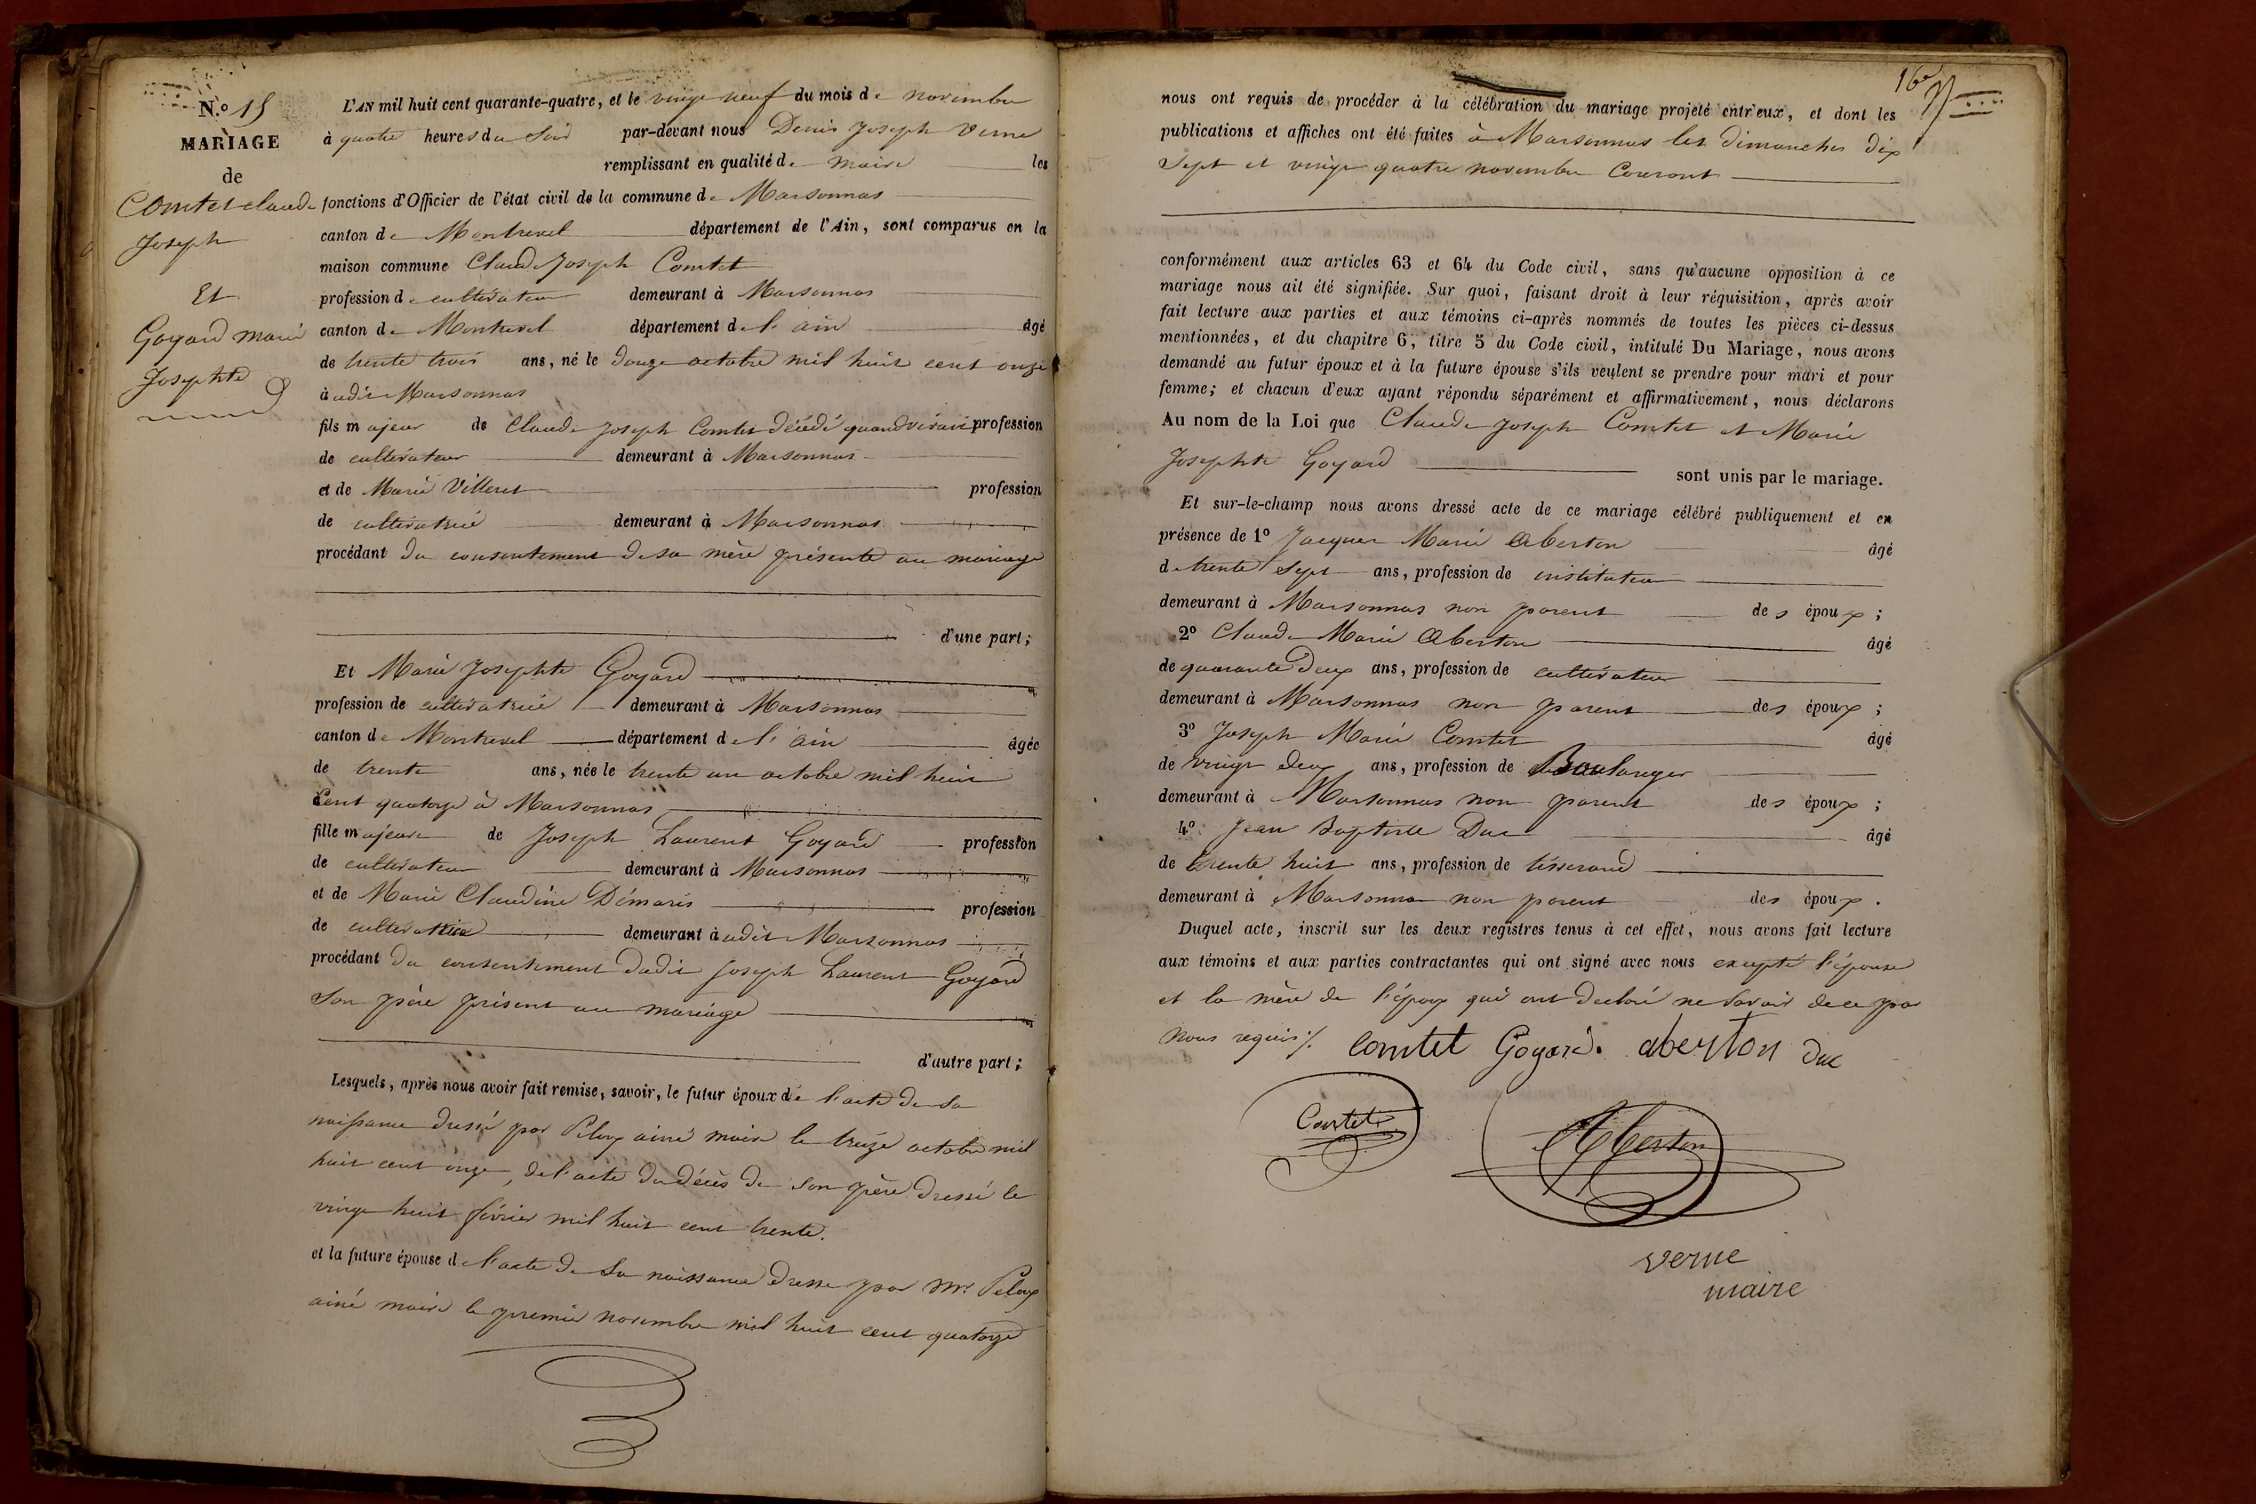 N.o 15
MARIAGE
de
Comtet claude
Joseph
Et
Goyard marie
Josephte
L'AN mil huit cent quarante-quatre, et le vingt neuf du mois de novembre
à quatre heures du soir par-devant nous Denis Joseph Verne
remplissant en qualité de maire les
fonctions d'Officier de l'état civil de la commune de Marsonnas
canton de Montrevel département de l'Ain, sont comparus en la
maison commune Claude Joseph Comtet
profession de cultivateur demeurant à Marsonnas
canton de Montrevel département de l'ain âgé
de trente trois ans, né le douze octobre mil huit cent onze
à udit Marsonnas
fils majeur de Claude Joseph Comtet décédé quand vivait profession
de cultivateur demeurant à Marsonnas
et de Marie Villeret profession
de cultivatrice demeurant à Marsonnas
procédant du consentement de sa mère présente au mariage
d'une part;
Et Marie Josephte Goyard
profession de cultivatrice demeurant à Marsonnas
canton de Montrevel département de l'ain âgée
de trente ans, née le trente un octobre mil huit
cent quatorze à Marsonnas
fille majeure de Joseph Laurent Goyard profession
de cultivateur demeurant à Marsonnas
et de Marie Claudine Démaris profession
de cultivatrice demeurant à udit Marsonnas
procédant du consentement dudit Joseph Laurent Goyard
son père présent au mariage
d'autre part;
Lesquels, après nous avoir fait remise, savoir, le futur époux de l'acte de sa
naissance dressé par Peloux ainé maire le treize octobre mil
huit cent onze, de l'acte du décès de son père dressé le
vingt huit février mil huit cent trente.
et la future épouse de l'acte de sa naissance dressé par Mr Peloux
ainé maire le premier novembre mil huit cent quatorze
16e
nous ont requis de procéder à la célébration du mariage projeté entr'eux, et dont les
publications et affiches ont été faites à Marsonnas les dimanches dix
sept et vingt quatre novembre Courant
conformément aux articles 63 et 64 du Code civil, sans qu'aucune opposition à ce
mariage nous ait été signifiée. Sur quoi, faisant droit à leur réquisition, après avoir
fait lecture aux parties et aux témoins ci-après nommés de toutes les pièces ci-dessus
mentionnées, et du chapitre 6, titre 5 du Code civil, intitulé Du Mariage, nous avons
demandé au futur époux et à la future épouse s'ils veulent se prendre pour mari et pour
femme; et chacun d'eux ayant répondu séparément et affirmativement, nous déclarons
Au nom de la Loi que Claude Joseph Comtet et Marie
Josephte Goyard sont unis par le mariage.
Et sur-le-champ nous avons dressé acte de ce mariage célébré publiquement et en
présence de 1o Jacques Marie Aberton âgé
de trente sept ans, profession de instituteur
demeurant à Marsonnas non parent des époux;
2o Claude Marie Aberton âgé
de quarante deux ans, profession de cultivateur
demeurant à Marsonnas non parent des époux;
3o Joseph Marie Comtet âgé
de vingt deux ans, profession de Boulanger
demeurant à Marsonnas non parent des époux;
4o Jean Baptiste Duc âgé
de trente huit ans, profession de tisserand
demeurant à Marsonnas non parent des époux.
Duquel acte, inscrit sur les deux registres tenus à cet effet, nous avons fait lecture
aux témoins et aux parties contractantes qui ont signé avec nous excepté l'épouse
et la mère de l'époux qui ont déclaré ne savoir de ce par
nous requis /.
comtet Goyard. aberton Duc
Comtet
Aberton
verne
maire